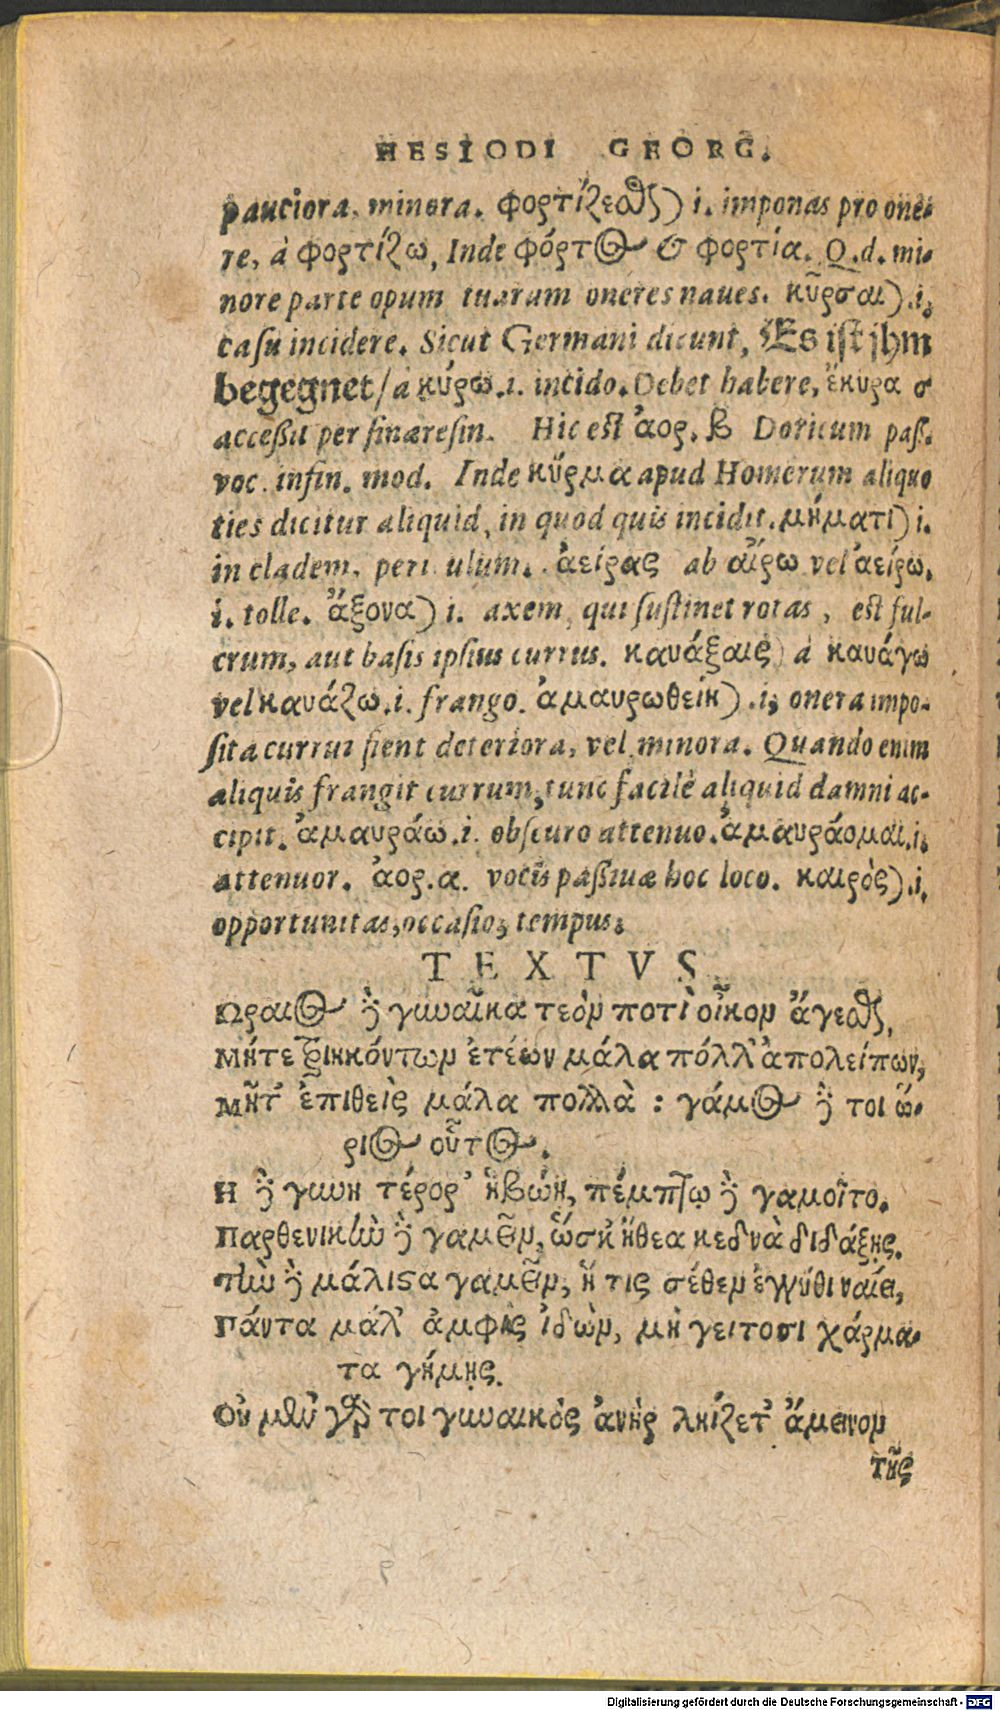 HESIODI GEORG.
pauciora, minora. φορτίζεσθαι) i. imponas pro one-
re, à φορτίζω, Inde φόρτος & φορτία. Q.d. mi-
nore parte opum tuarum oneres naues. κῦρσαι) .i.
casu incidere. Sicut Germani dicunt, Es ist jhm
begegnet/ à κύρω .i. incido. Debet habere, ἔκυρα σ
accessit per sinæresin. Hic est ἀορ. β Doricum pass.
voc. infin. mod. Inde κῦρμα apud Homerum aliquo
ties dicitur aliquid, in quod quis incidit. μήματι) i.
in cladem, peri ulum. ἀείρας ab αἴρω vel ἀείρω,
i. tolle. ἄξονα) i. axem, qui sustinet rotas, est ful-
crum, aut basis ipsius currus. καυάξαις) à καυάγω
vel καυάζω .i. frango. ἀμαυρωθείη) .i. onera impo-
sita currui fient deteriora, vel minora. Quando enim
aliquis frangit currum, tunc facilè aliquid damni ac-
cipit. ἀμαυράω .i. obscuro attenuo. ἀμαυράομαι .i.
attenuor. ἀορ. α. vocis passiuæ hoc loco. καιρὸς) .i.
opportunitas, occasio, tempus.
TEXTVS
Ωραιος δὲ γυναῖκα τεὸν ποτὶ οἶκον ἄγεσθαι,
Μήτε τριηκόντων ἐτέων μάλα πόλλ' ἀπολείπων,
Μήτ' ἐπιθεὶς μάλα πολλὰ : γάμος δέ τοι ὥ-
ριος οὗτος.
Η δὲ γυνη τέτορ' ἡβώη, πέμπτῳ δὲ γαμοῖτο.
Παρθενικὴν δὲ γαμεῖν, ὥς κ' ἤθεα κεδνὰ διδάξῃς.
Τὴν δὲ μάλιστα γαμεῖν, ἥ τις σέθεν ἐγγύθι ναίει,
Πάντα μάλ' ἀμφὶς ἰδὼν, μὴ γείτοσι χάρμα-
τα γήμῃς.
Οὐ μὲν γάρ τοι γυναικὸς ἀνὴρ ληίζετ' ἄμεινον
τῆς
Digitalisierung gefördert durch die Deutsche Forschungsgemeinschaft - DFG